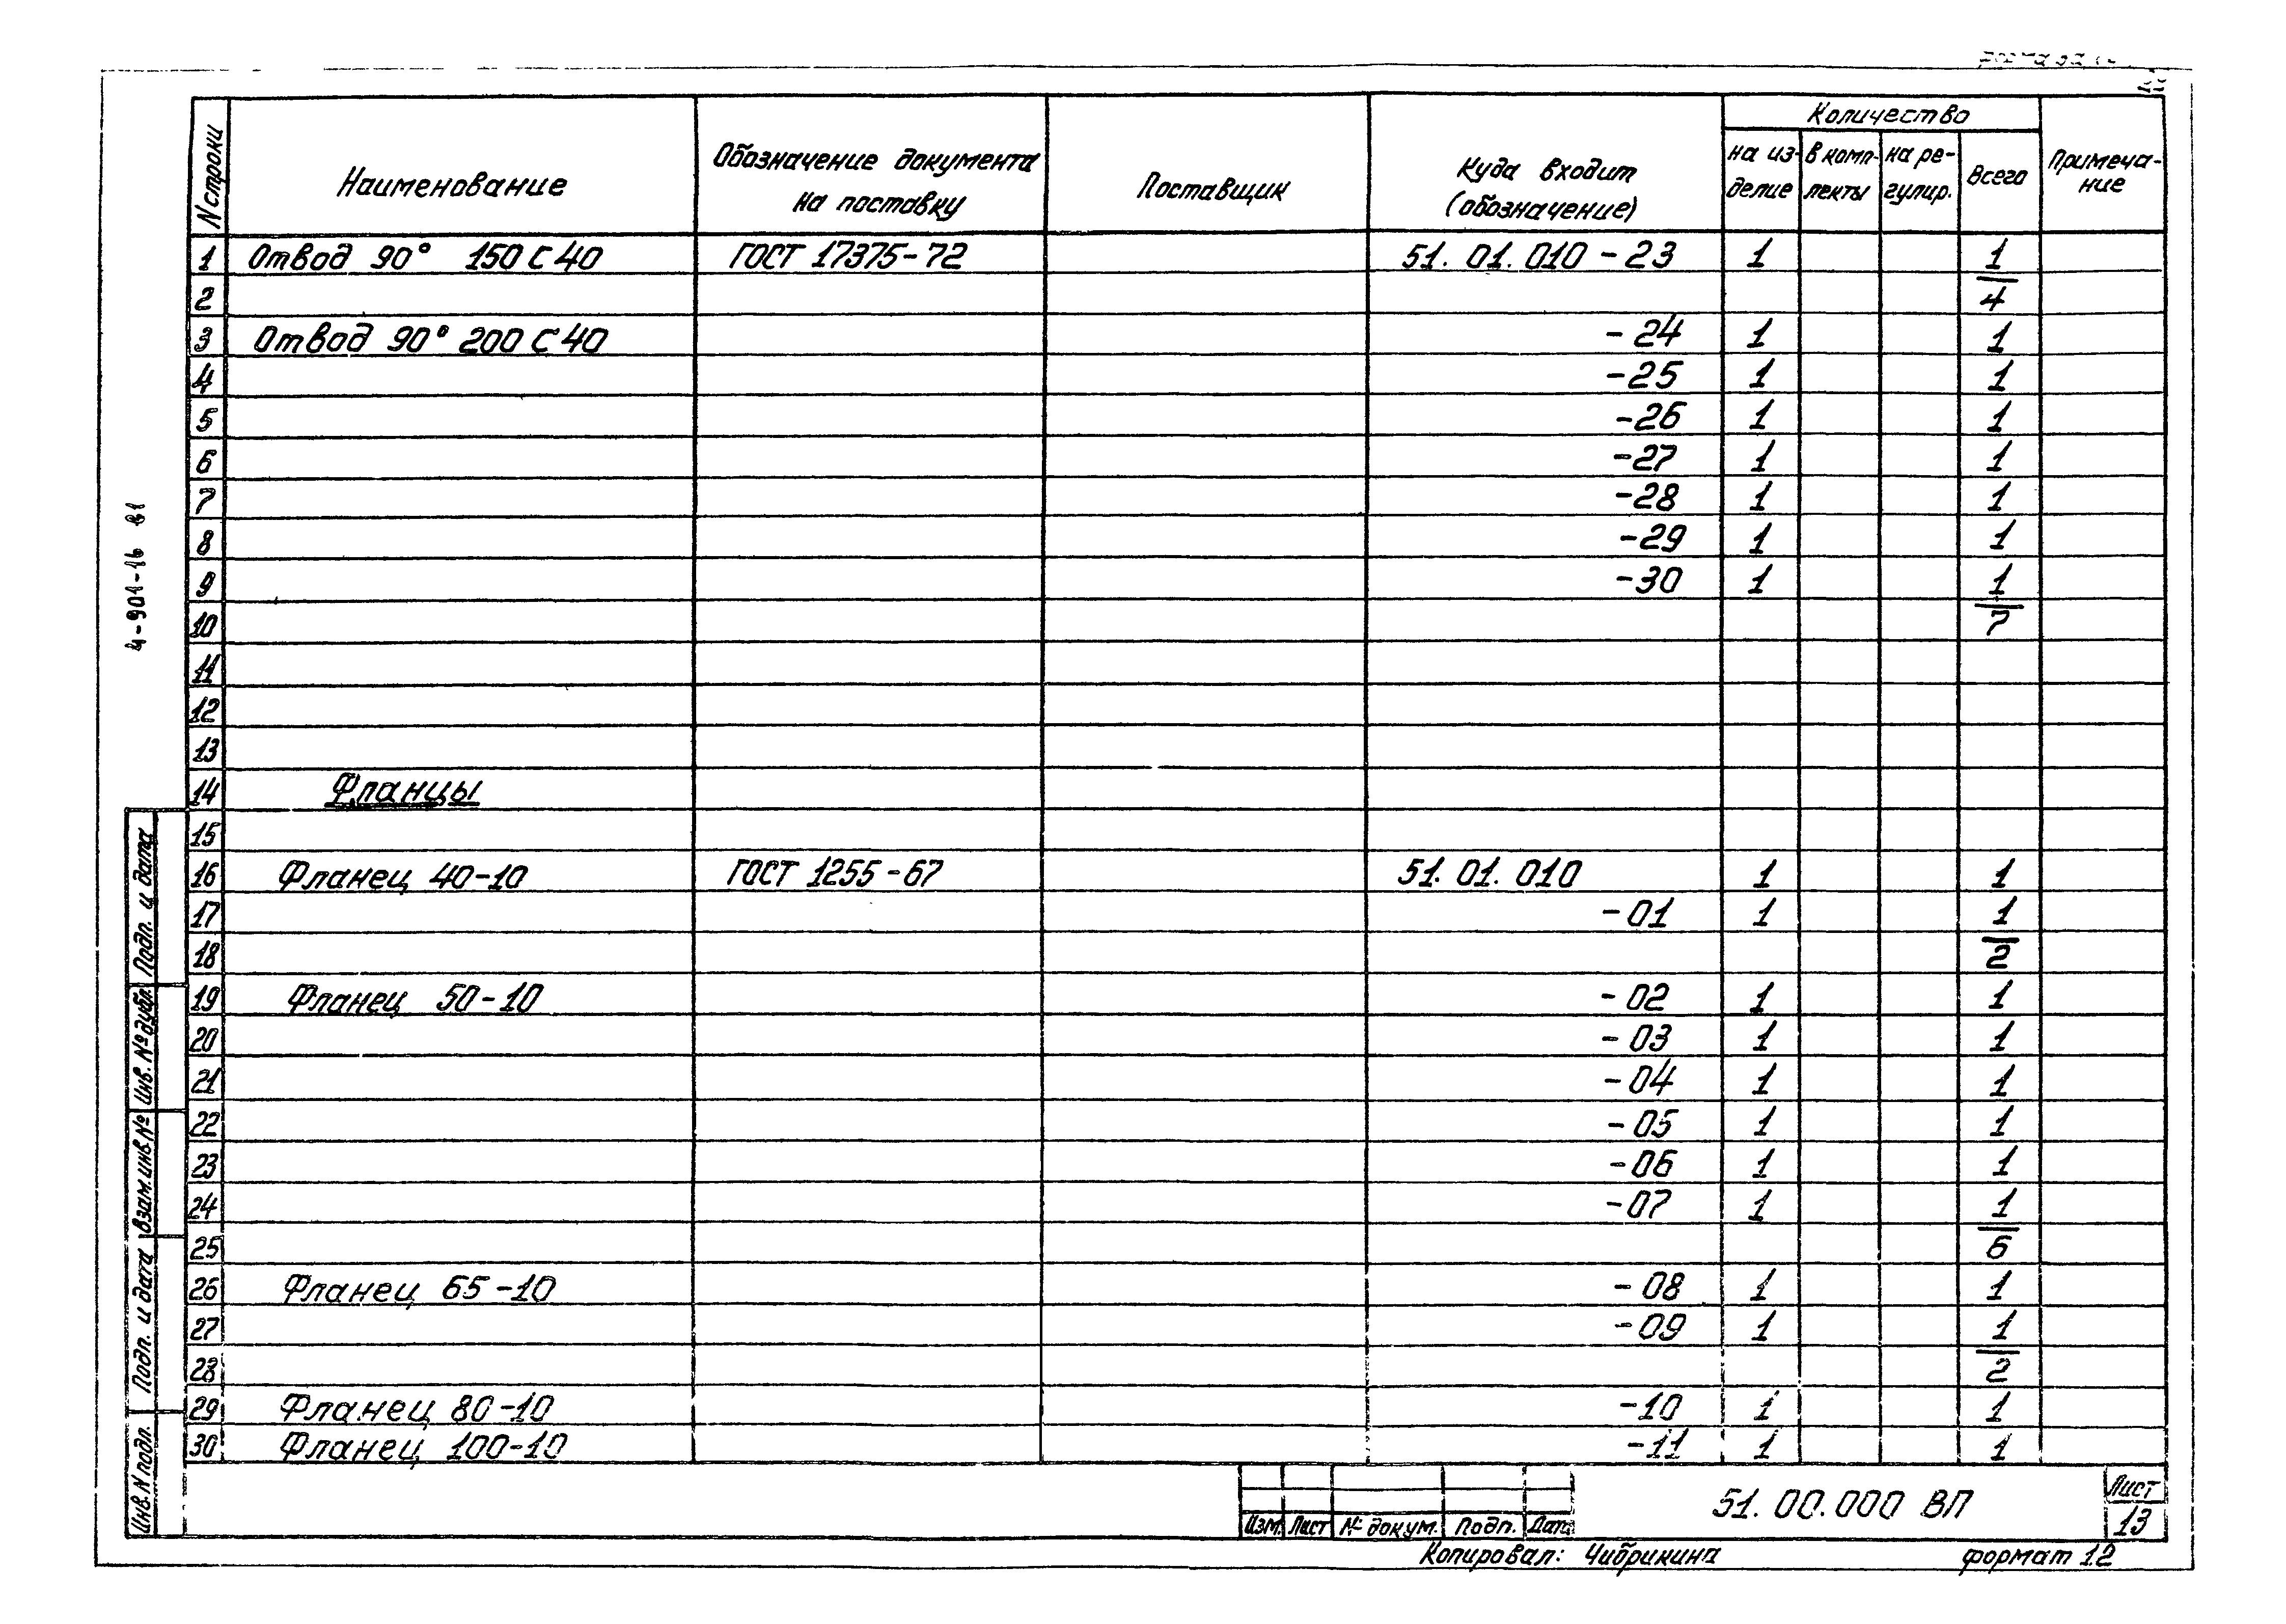 N строки Наименование Обозначение документа на поставку Поставщик Куда входит (обозначение) Количество Примеча-ние
на из-делие в комп-лекты на ре-гулир. Всего
1 Отвод 90° 150 С 40 ГОСТ 17375-72 51.01.010-23 1 1
2 4
3 Отвод 90° 200 С 40 -24 1 1
4 -25 1 1
5 -26 1 1
6 -27 1 1
7 -28 1 1
8 -29 1 1
9 -30 1 1
10 7
11
12
13
14 Фланцы
15
16 Фланец 40-10 ГОСТ 1255-67 51.01.010 1 1
17 -01 1 1
18 2
19 Фланец 50-10 -02 1 1
20 -03 1 1
21 -04 1 1
22 -05 1 1
23 -06 1 1
24 -07 1 1
25 6
26 Фланец 65-10 -08 1 1
27 -09 1 1
28 2
29 Фланец 80-10 -10 1 1
30 Фланец 100-10 -11 1 1
4-901-16 В1
Подп. и дата
Инв. № дубл.
Взам. инв. №
Подп. и дата
Инв. N подл.
Изм. Лист № докум. Подп. Дата
51.00.000 ВП
Лист
13
Копировал: Чибрикина формат 12